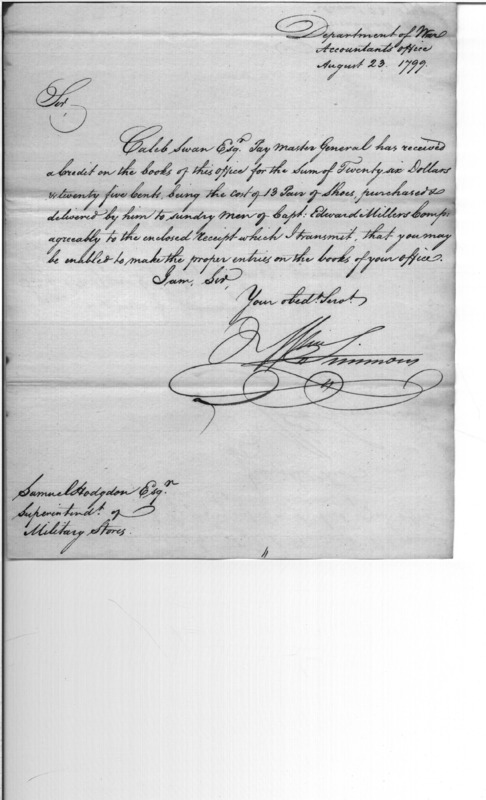 Department of War
Accountants office
August 23. 1799.
Sir,
Caleb Swan Esqr. Pay Master General has received
a Credit on the books of this office for the sum of Twenty six Dollars
& twenty five Cents, being the cost of 13 Pair of Shoes, purchased &
delivered by him to sundry men of Capt: Edward Millers Compy:
agreeably to the enclosed Receipt which I transmit, that you may
be enabled to make the proper entries on the books of your office.
I am, Sir,
Your obedt. Servt.
Wm Simmons
Samuel Hodgdon Esqr.
Superintendt. of
Military Stores.